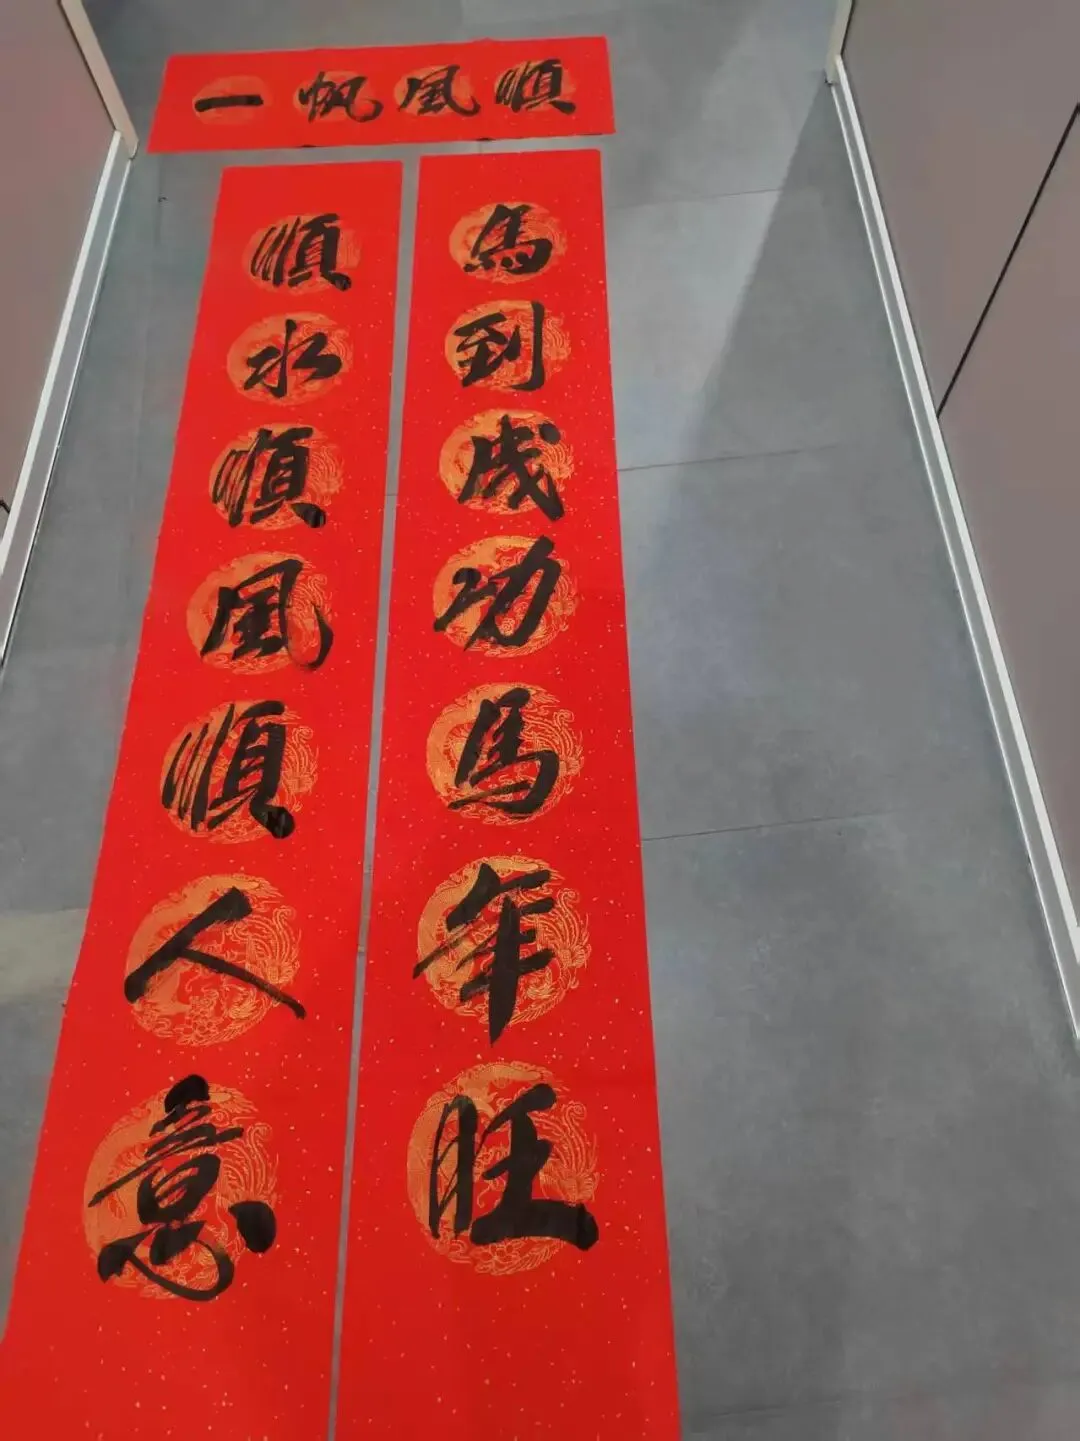 一帆風順
順水順風順人意
馬到成功馬年旺